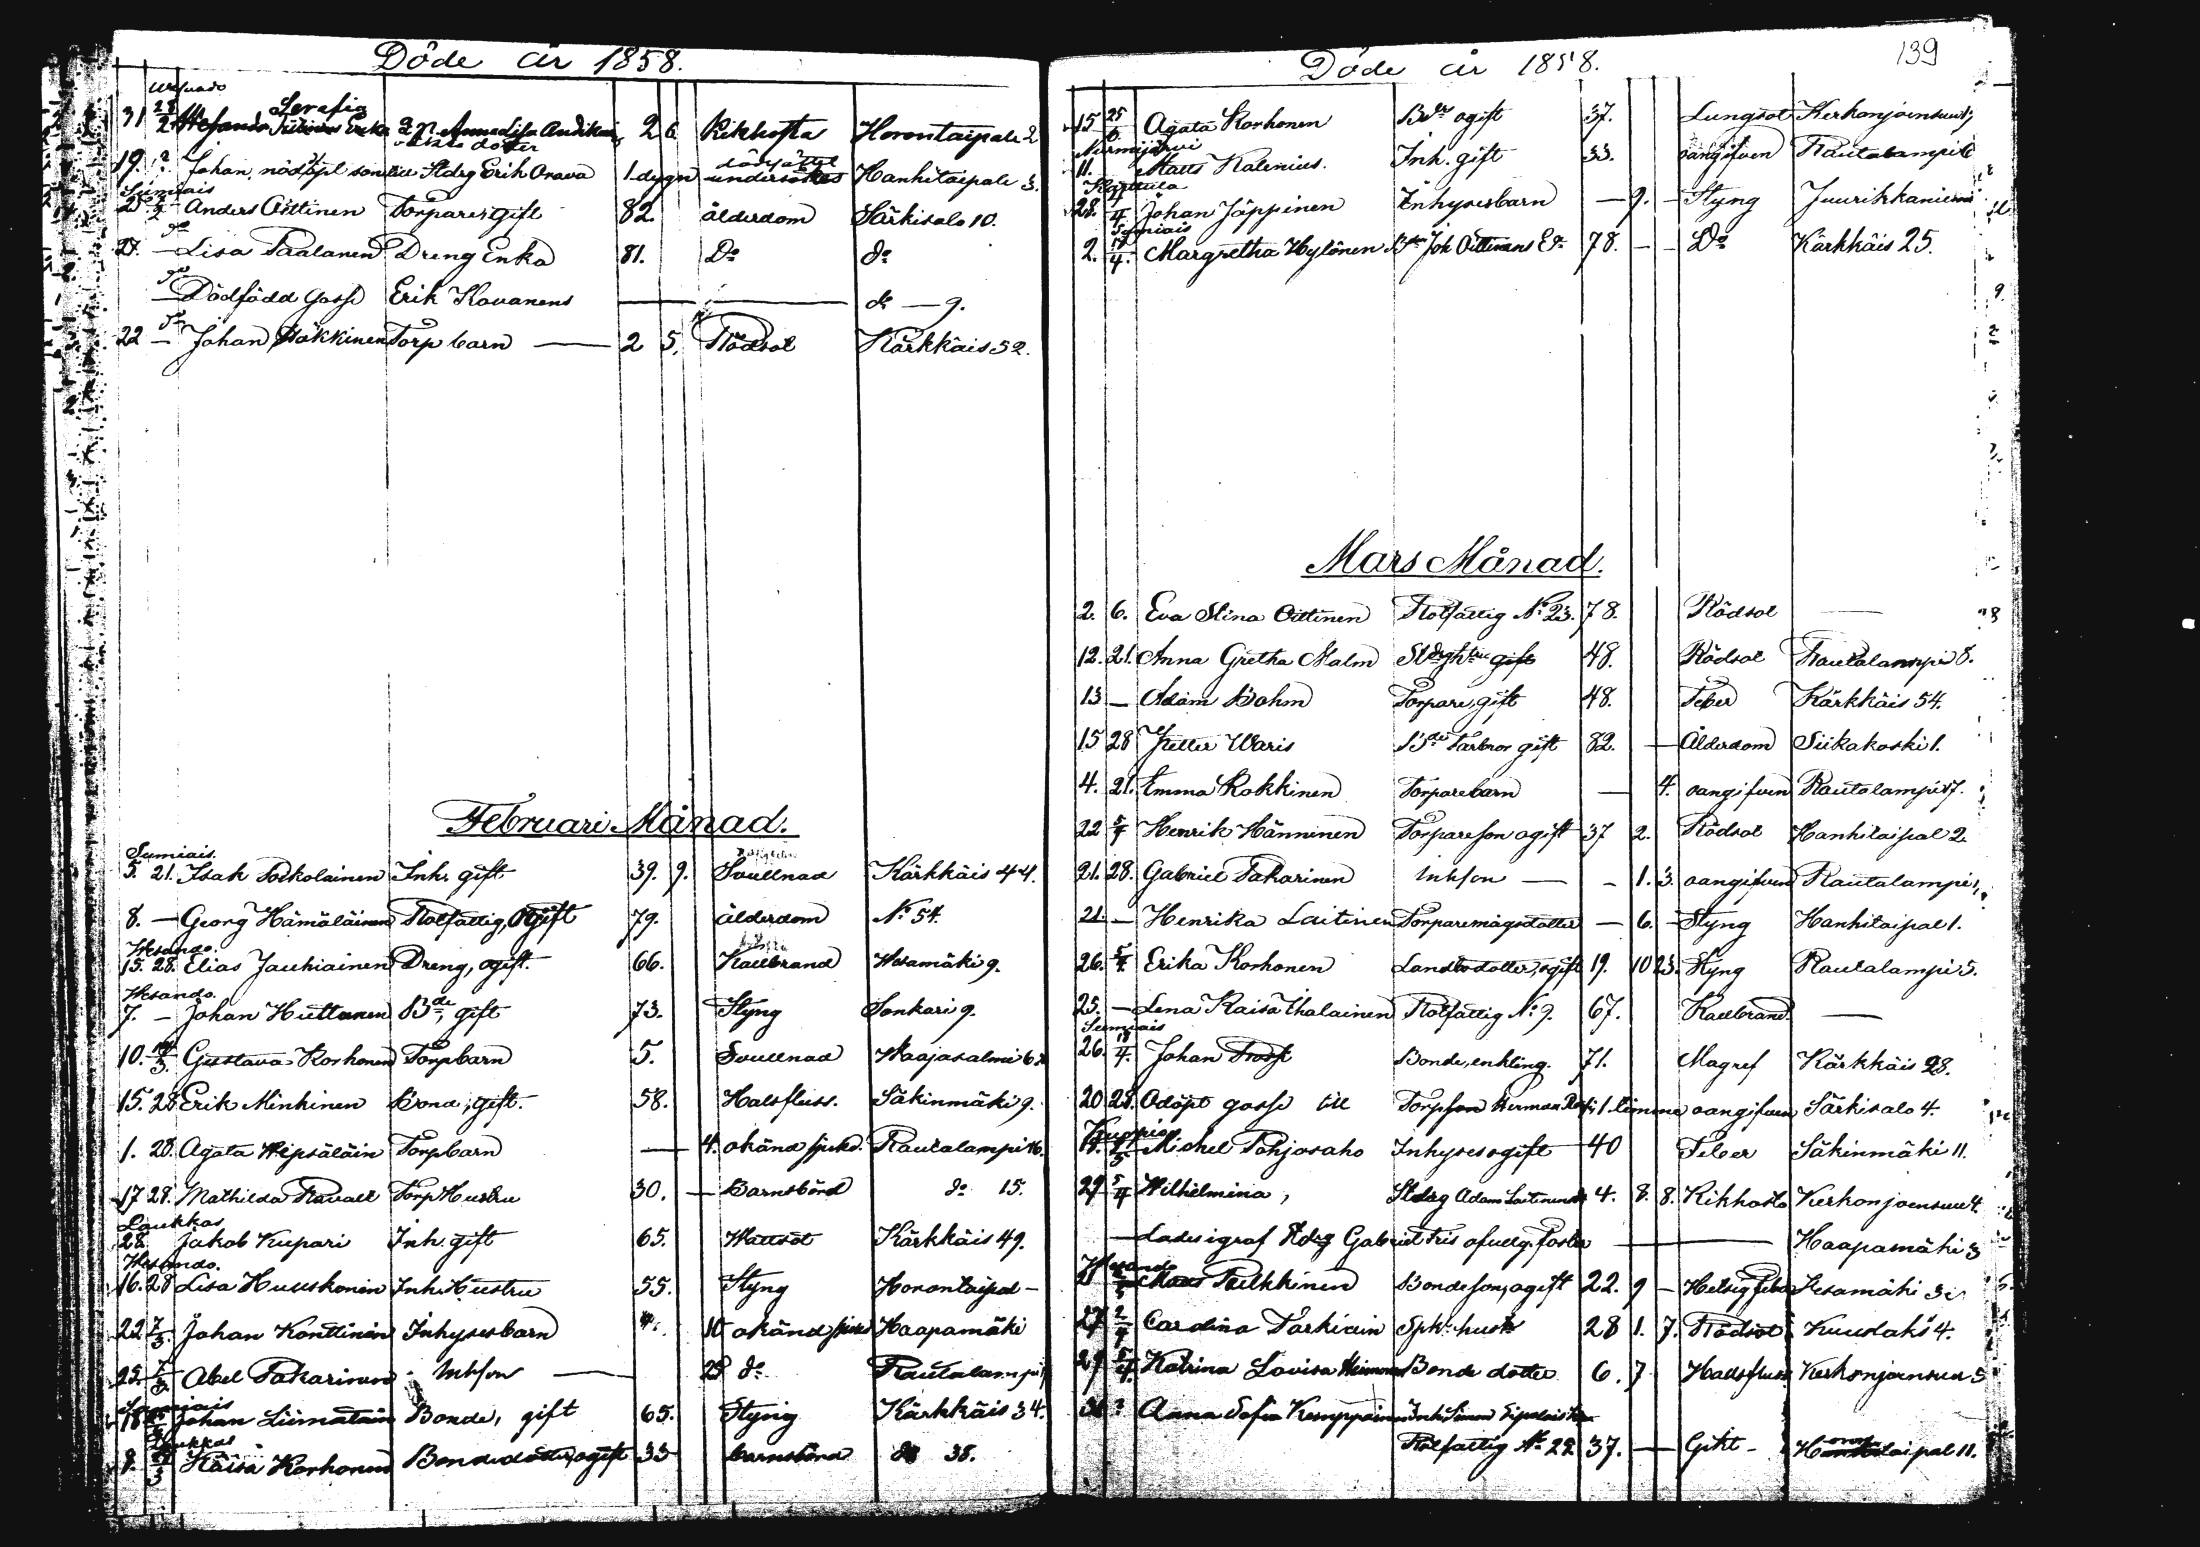 Döde år 1858.
31 28/2 Serafia Erika Anna Lisa 2 6. Kikhosta Horontaipale 2
dotter
19. ? Johan, nöddöpt son till Stdrg Erik Orava 1 dygn undersökes Hanhitaipale 3.
Sumiais
25 Anders Oittinen Torpare, gift 82. ålderdom Särkisalo 10.
27. — Lisa Paalanen Dreng Enka 81. Do do
— Dödfödd Gosse Erik Kovanens — do — 9.
22 — Johan Häkkinen Torpbarn — 2 5. Rödsot Kärkkäis 52.
Februari Månad.
Sumiais.
5. 21. Isak Inh. gift 39. 9. Svullnad Kärkkäis 44.
8. — Georg Hämäläinen Rotfattig, Ogift 79. ålderdom No 54.
Wesando.
15. 28. Elias Jauhiainen Dreng, ogift. 66. Kallbrand Wesamäki 9.
Wesando.
7. — Johan Huttunen Bde, gift 73. Styng Sonkari 9.
10. Gustava Korhonen Torpbarn 5. Svullnad Waajasalmi 6.
15. 28 Erik Minkinen Bonde, gift. 58. Halsfluss. Säkinmäki 9.
1. 28. Agata Wepsäläin Torpbarn — 4. okänd sjukd. Rautalampi 16.
17 28. Mathilda Ravall Torp Hustru 30. — Barnsbörd do 15.
Laukkas
28 Jakob Kupari Inh. gift 65. Wattsot Kärkkäis 49.
Wesando.
16. 28 Lisa Huuskonen Inh. Hustru 55. Styng Horontaipal —
22 7/3. Johan Konttinen Inhysesbarn 10 okänd Haapamäki
25. 7/3 Abel Pakarinen Inhson — 25 do Rautalampi
Sumiais
18 Johan Liimatain Bonde, gift 65. Styng Kärkkäis 34.
Laukkas
8. Kaisa Korhonen Bondedotter, ogift 33 barnsbörd do 38.
Döde år 1858.
139
15 25 Agata Korhonen Bdr ogift 37. Lungsot Kerkonjoensuu
Nurmijärvi
11. Matts Kalenius. Inh. gift 33. oangifven Rautalampi 6
Karttula
28. 4/4 Johan Jäppinen Inhysesbarn — 9. — Styng Juurikkaniemi
Sumiais
2. Margretha Hylönen Joh Oittinens Ea 78. — — Do Kärkkäis 25.
Mars Månad.
2. 6. Eva Stina Oittinen Rotfattig No 23. 78. Rödsot —
12. 21. Anna Gretha Malm gift 48. Rödsot Rautalampi 8.
13 — Adam Bohm Torpare, gift 48. Feber Kärkkäis 54.
15 28 Petter Waris gift 82. — Ålderdom Siikakoski 1.
4. 21. Emma Rokkinen Torparebarn — 4. oangifven Rautalampi 17.
22 5/4 Henrik Hänninen Torpareson ogift 37 2. Rödsot Hanhitaipal 2.
21. 28. Gabriel Pakarinen Inhson — — 1. 3. oangifven Rautalampi
21. — Henrika Laitinen Torparemågsdotter — 6. — Styng Hanhitaipal 1.
26. 5/4. Erika Korhonen Landbodotter, ogift 19. 10 23. Styng Rautalampi 5.
25. — Lena Kaisa Ihalainen Rotfattig No 9. 67. Kallbrand. —
Sumiais
26. 18/4. Johan Bonde, enkling. 71. Magref Kärkkäis 28.
20 28. Odöpt gosse till Torpson Herman 1 timme oangifven Särkisalo 4.
Kuopio
19. Michel Pohjosaho Inhyses ogift 40 Feber Säkinmäki 11.
29 5/4 Wilhelmina, Stdrg Adam Laitinens 4. 8. 8. Kikhosta Kerkonjoensuu 4.
— Lades i graf Rdrg Gabriel foster — Haapamäki 3
Wesando
21 Pulkkinen Bondeson, ogift 22. 9 — Wesamäki 3
27 2/4 Carolina Tarkiain hustr 28 1. 7. Rödsot Kuuslaks 4.
29 5/4 Katrina Lovisa Bonde dotter 6. 7 Halsfluss Kerkonjoensuu 5
30 ? Anna Sofia Kemppainen Inh. Simon
Rotfattig No 22 37. — Gikt — Horontaipal 11.